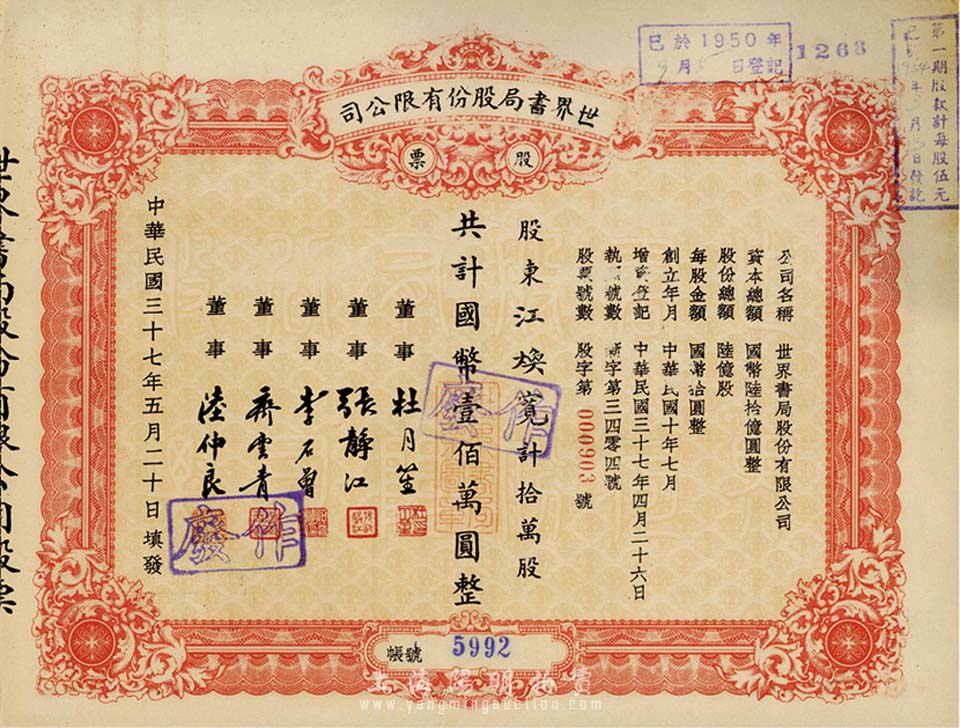 已於1950年
月 日登記
1268
第一期股款計每股伍元
世界書局股份有限公司
股票
公司名稱 世界書局股份有限公司
資本總額 國幣陸拾億圓整
股份總額 陸億股
每股金額 國幣拾圓整
創立年月 中華民國十年七月
增資登記 中華民國三十七年四月二十六日
執照號數 新字第三四零四號
股票號數 股字第 000903 號
股東江煥 計拾萬股
共計國幣壹佰萬圓整
董事 杜月笙
董事 張靜江
董事 李石曾
董事 齊雲青
董事 陸仲良
作廢
作廢
中華民國三十七年五月二十日填發
世界書局股份有限公司股票
帳號 5992
上海陽明拍賣
www.yangmingauction.com